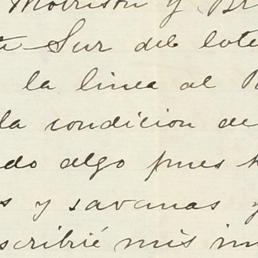 Morrison y Br
te Sur del lote
la linea al P
la condicion de
do algo pues h
s y savanas y
scribié mis in